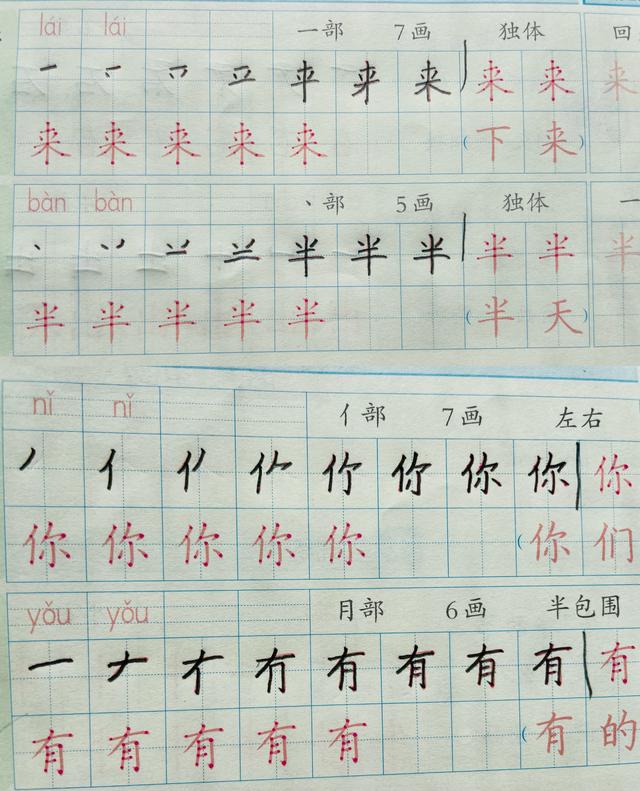 lái lái 一部 7画 独体 回
一 来 来 来 来
来 来 来 来 来 (下 来)
bàn bàn 丶部 5画 独体 一
丶 丷 半 半 半 半 半 半
半 半 半 半 半 (半 天)
nǐ nǐ 亻部 7画 左右
丿 亻 你 你 你
你 你 你 你 你 (你 们
yǒu yǒu 月部 6画 半包围
一 𠂇 有 有 有 有 有
有 有 有 有 有 (有 的